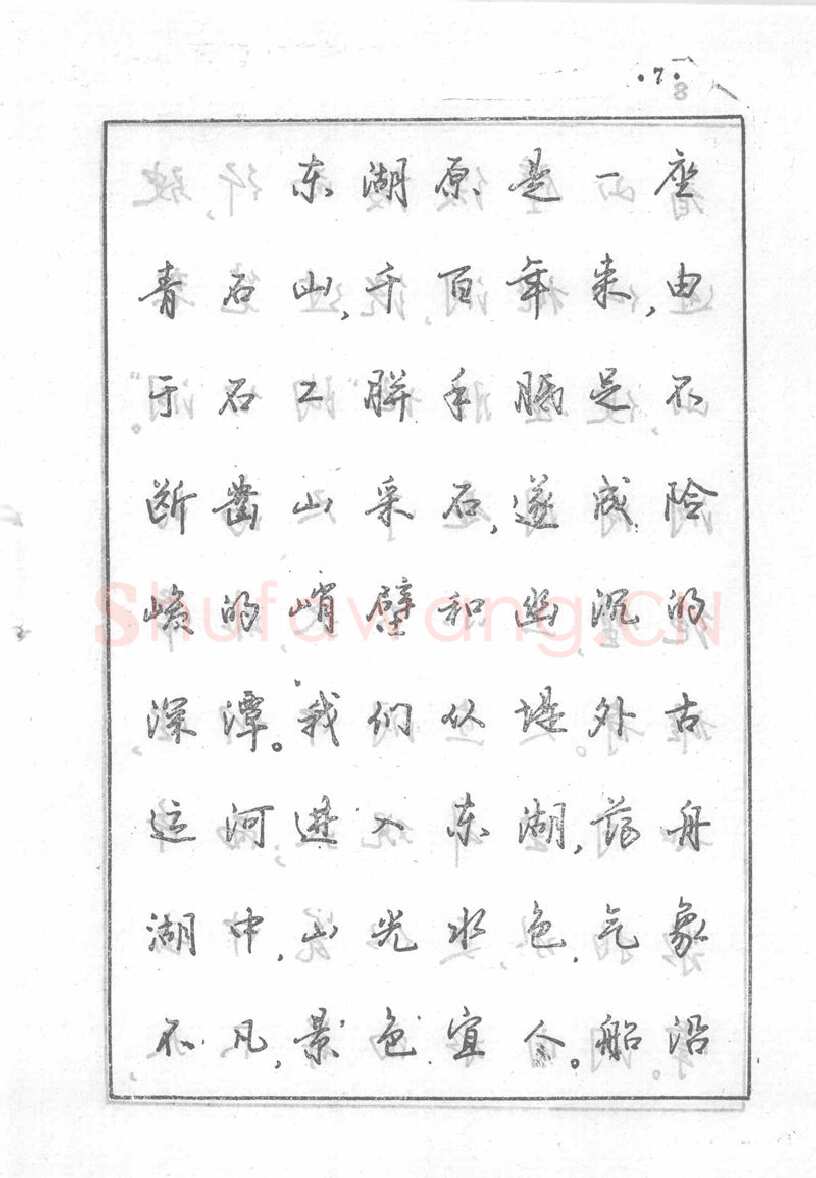 ·7·
8
东湖原是一座
青石山,千百年来,由
于石工胼手胝足不
断凿山采石,遂成险
峻的峭壁和幽沉的
深潭。我们从堤外古
运河进入东湖,荡舟
湖中,山光水色,气象
不凡,景色宜人。船沿
Shufawang.CN